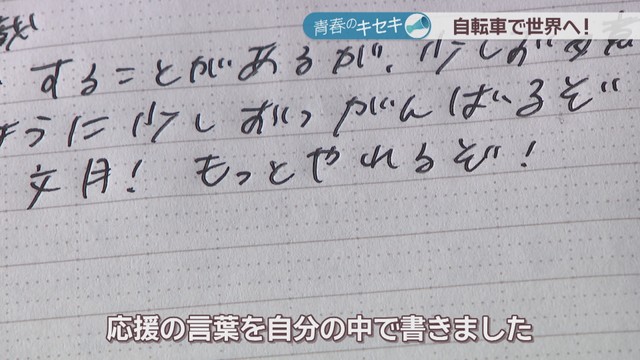 青春のキセキ
自転車で世界へ！
することがあるが、少しず
うに 少しずつ がんばるぞ
文月！ もっとやれるぞ！
応援の言葉を自分の中で書きました